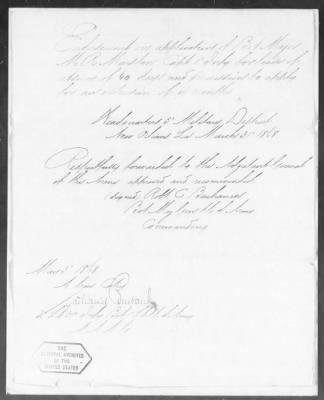 Endorsement on application of Bvt Major
M. R. Marston Capt 1" Infy for leave of
absence of 60 days and permission to apply
for an extension of months
Headquarters 5" Military District
New Orleans La March 5" 1868
Respectfully forwarded to the Adjutant General
of the Army approved and recommended
(signed) Robt C. Buchanan
Bvt Maj Genl U.S. Army
Commanding
Mar 5" 1868
A true Copy
U.S. Army
THE
NATIONAL ARCHIVES
OF THE
UNITED STATES